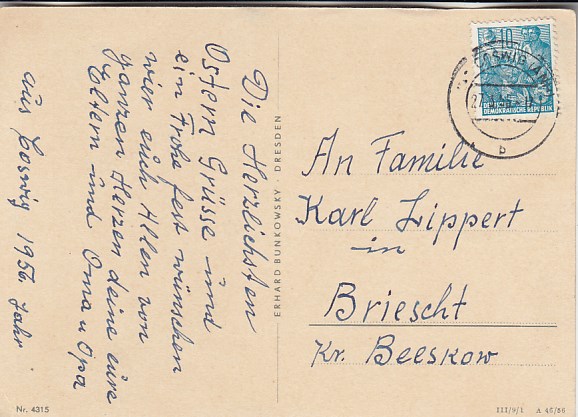 Die Herzlichsten
Ostern Grüsse und
ein Frohe fest wünschen
wier euch Allen von
ganzen Herzen deine eure
Eltern und Oma u Opa
aus Coswig 1956. Jahr
ERHARD BUNKOWSKY · DRESDEN
10
DEUTSCHE
DEMOKRATISCHE REPUBLIK
COSWIG
b
An Familie
Karl Lippert
in
Briescht
Kr. Beeskow
Nr. 4315
III/9/1 A 45/56